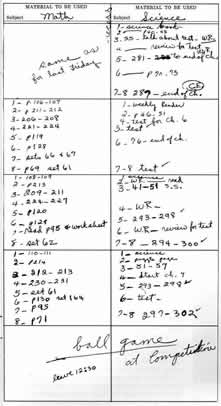 MATERIAL TO BE USED
Subject Math
same as
for last Friday
1 - p 106-109
2 - p 211-212
3 - 206-208
4 - 221-224
5 - p119
6 - p128
7 - sets 66 & 67
8 - p69 set 61
1 - 108-109
2 - p213
3 - 209-211
4 - 224-227
5 - p120
6 - p129
7 - Read p95 & worksheet
8 - set 62
1 - 110-111
2 - p214
3 - 212-213
4 - 230-231
5 - set 61
6 - p130 set 164
7 - p95
8 - p71
MATERIAL TO BE USED
Subject Science
1 - science book
2 - p40-41
3. 35 - talk about test - WR
review for test
5 - 281 - to end of ch.
6 - p 90-93
7-8 289 - end of ch.
1 - weekly reader
2 - p46-48
4 - test for ch. 6
5 - test
6 - 96 - end of ch.
7-8 test ✓
3 - 41-51 S.S.
4 - WR -
5 - 293-298 ✓
6 - WR - review for test
7-8 - 294-300 ✓
1 - science
2 - puzzle page
3 - 51-57
4 - start ch. 7
5 - 293-298 ✓
6 - test -
7-8 297-302 ✓
ball game
at Competition
leave 12:30